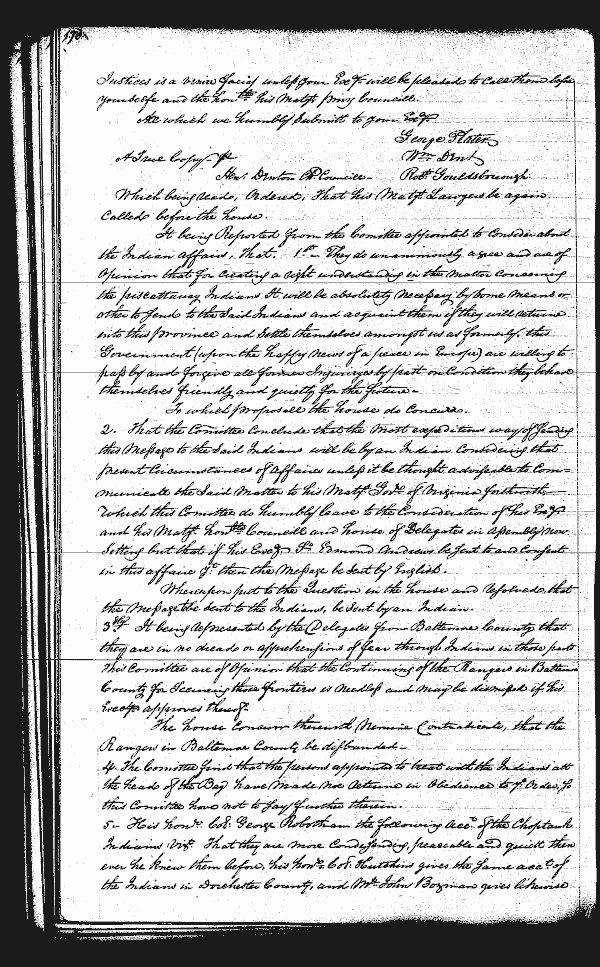 Justices is a venire facias unless your Exc:y will be pleased to call them before
yourselfe and the hon:ble his Maj:ts privy Councill.
All which we humbly Submitt to your Exc:y
George Plater
A True Copy W:m Dent
Hen: Denton Cl. Councill Rob:t Gouldesborough
Which being read, Ordered, That his Maj:ts Lawyers be again
called before the house.
It being Reported from the Comittee appointed to Consider about
the Indian affairs, That. 1st They do unanimously agree and are of
Opinion that for creating a right understanding in the matter concerning
the piscattaway Indians It will be absolutely necessary by some means or
other to send to the Said Indians and acquaint them if they will returne
into this Province and Settle themselves amongst us as formerly, this
Government (upon the happy news of a peace in Europe) are willing to
pass by and forgive all former Injuryes by past on Condition they behave
themselves friendly and quietly for the future.
To which proposall the house do Concur.
2. That the Comittee Conclude that the most expeditious way of sending
this Message to the Said Indians will be by an Indian Considering that
present Circumstances of Affaires unless it be thought adviseable to Com-
municate the Said Matter to his Maj:ts Gov:r of Virginia forthwith
which this Comittee do humbly leave to the Consideration of his Exc:y
and his Maj:ts hon:ble Councill and house of Delegates in Assembly now
Sitting but that if his Exc:y S:r Edmond Andross be Sent to and Consent
in this affaire then the Message be Sent by English.
Whereupon put to the Question in the house and resolved, that
the Message be sent to the Indians, be Sent by an Indian.
3:dly It being represented by the Delegates from Baltemore County that
they are in no dread or apprehensions of fear through Indians in those parts
this Comittee are of Opinion that the Continuing of the Rangers in Baltemore
County for Securing those frontiers is needless and may be dismissed if his
Exc:y approves thereof.
The house Concurr therewith Nemine Contradicente, that the
Rangers in Baltemore County be disbanded.
4. The Comittee find that the persons appointed to treat with the Indians att
the head of the Bay have made noe returne in Obedience to y:r Order, So
this Comittee have not to Say further therein.
5. His hon:r Col: George Robotham the following acc:t of the Choptank
Indians viz:t That they are more Condesending, peaceable and quiett then
ever he knew them before, his hon:r Col: Hutchins gives the same acc:t of
the Indians in Dorchester County, and M:r John Bozman gives likewise